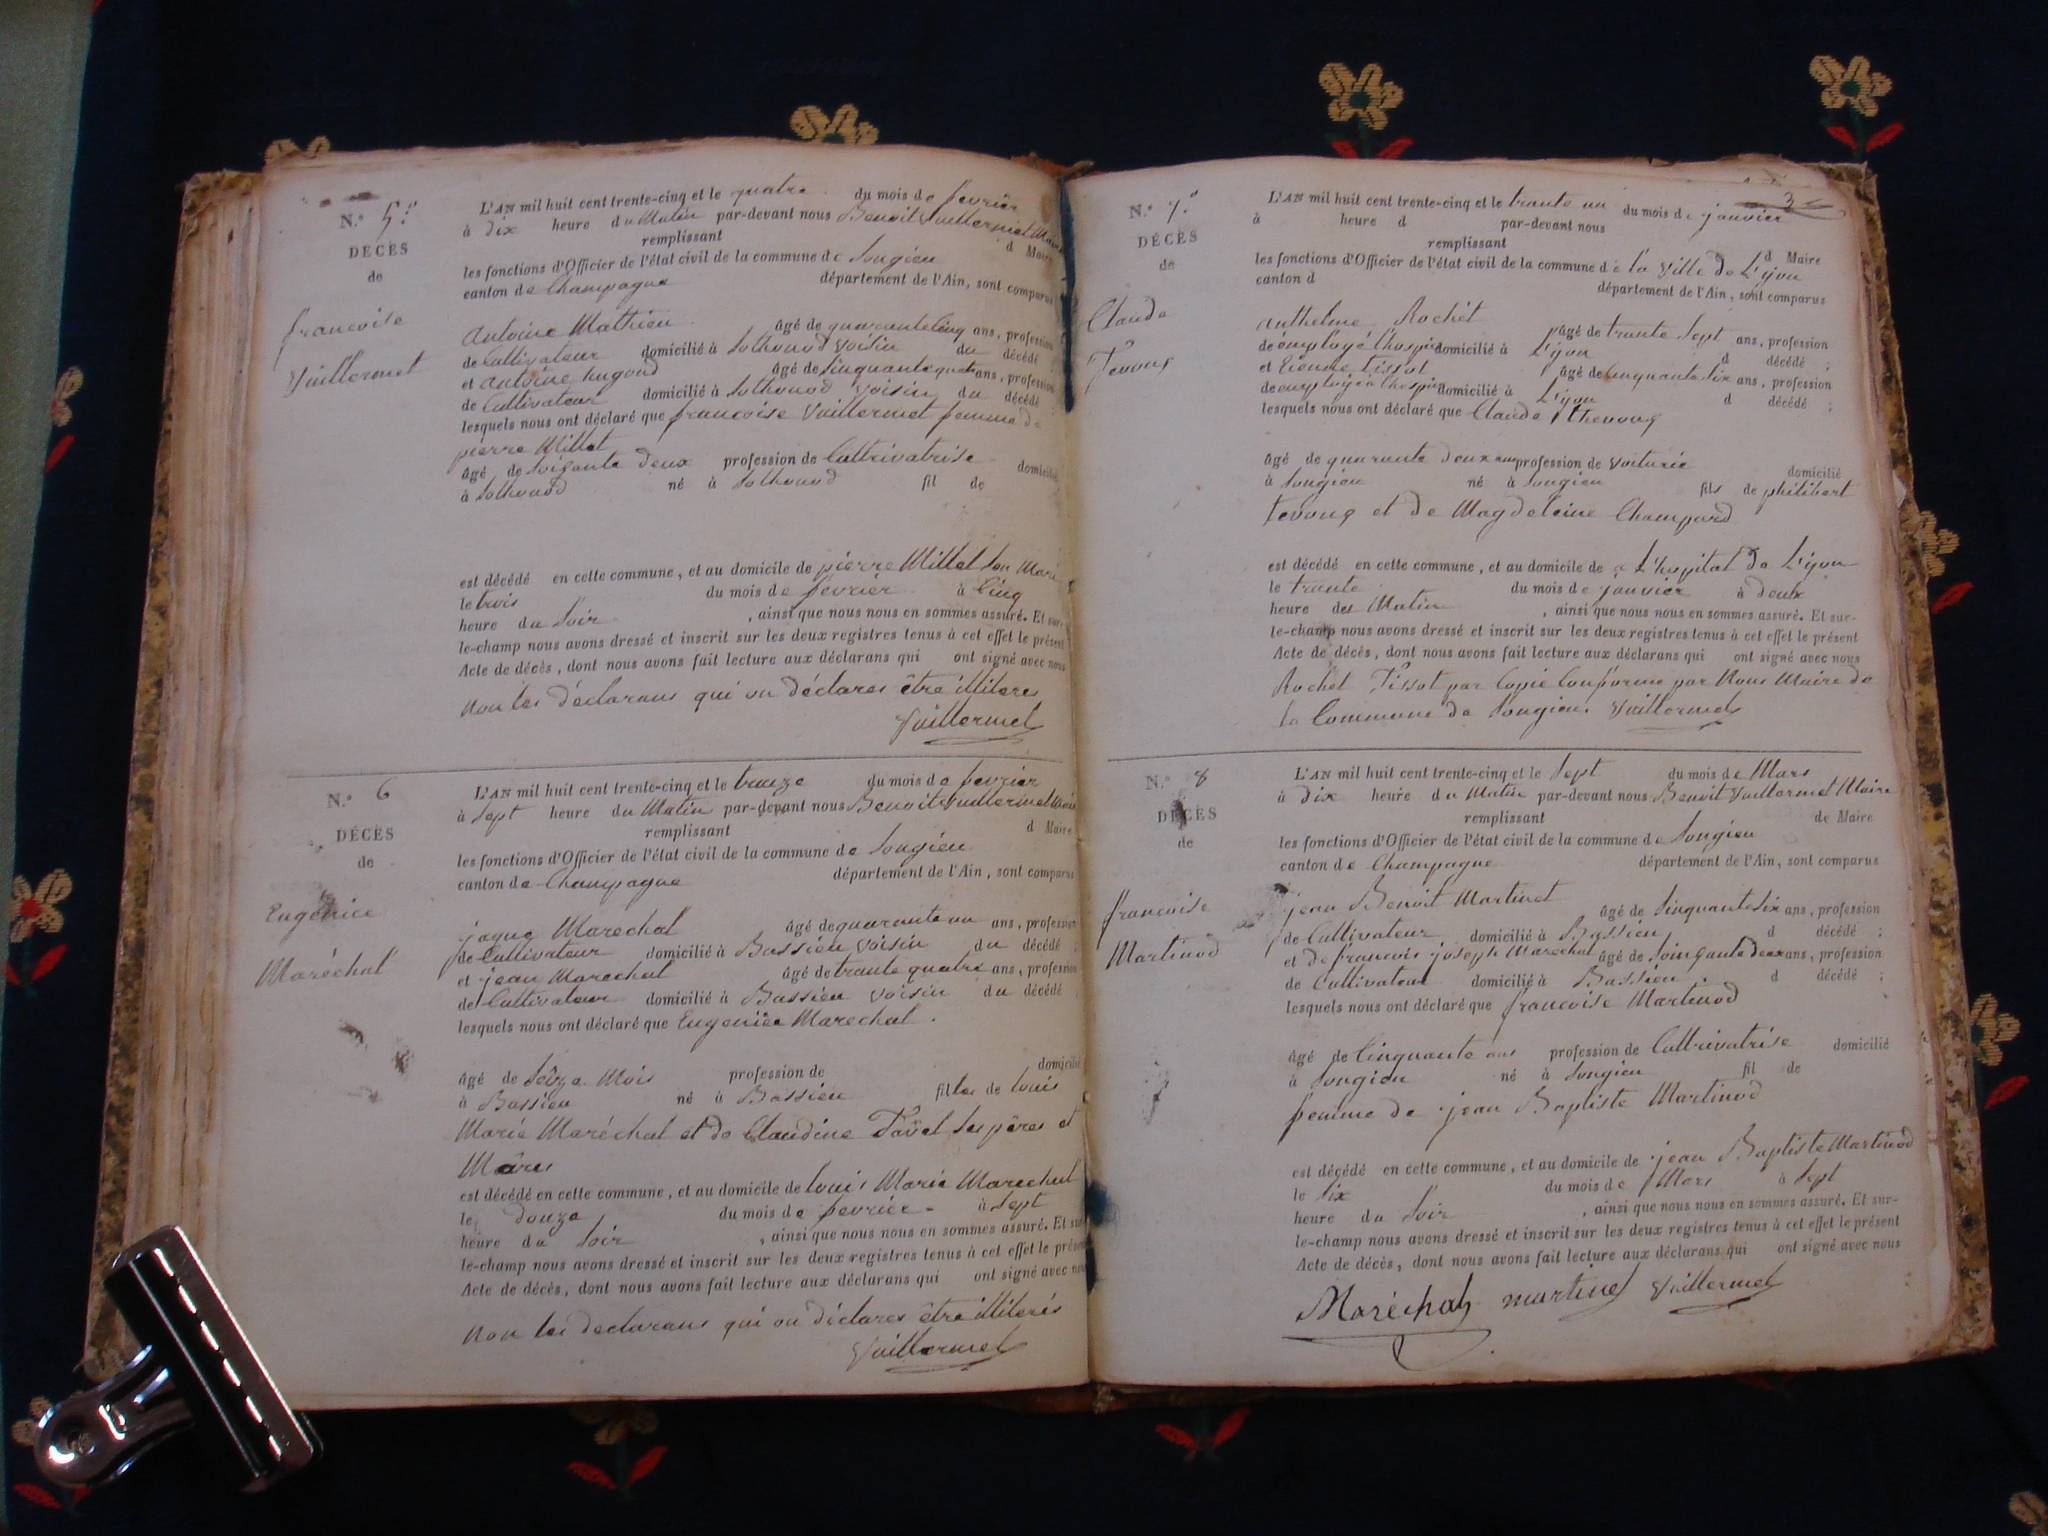 N.º 5.º
DÉCÈS
de
francoise
Vuillermet
L'AN mil huit cent trente-cinq et le quatre du mois de fevrièr
à dix heure du Matin par-devant nous Benoit Vuillermet Maire
remplissant d Maire
les fonctions d'Officier de l'état civil de la commune de Songieu
canton de Champagne département de l'Ain, sont comparus
Antoine Mathieu âgé de quarantecinq ans, profession
de Cultivateur domicilié à Sothonod Voisin du décédé ;
et Antoine hugond âgé de Sinquantequatre ans, profession
de Cultivateur domicilié à Sothonod Voisin du décédé ;
lesquels nous ont déclaré que francoise Vuillermet femme de
pierre Millet
âgé de Soigante deux profession de Cultrivatrise domicilié
à Sothonod né à Sothonod fil de
est décédé en cette commune, et au domicile de pierre Millet Son Mari
le trois du mois de fevrièr à Cinq
heure du Soir , ainsi que nous nous en sommes assuré. Et sur-
le-champ nous avons dressé et inscrit sur les deux registres tenus à cet effet le présent
Acte de décès, dont nous avons fait lecture aux déclarans qui ont signé avec nous
Non les déclarans qui on déclares être illiteres
Vuillermet
N.º 6
DÉCÈS
de
Eugénice
Maréchal
L'AN mil huit cent trente-cinq et le treuze du mois de fevrièr
à Sept heure du Matin par-devant nous Benoit Vuillermet Maire
remplissant d Maire
les fonctions d'Officier de l'état civil de la commune de Songieu
canton de Champagne département de l'Ain, sont comparus
jaque Marechal âgé de quaranteun ans, profession
de Cultivateur domicilié à Bassieu Voisin du décédé ;
et jean Marechal âgé de trante quatre ans, profession
de Cultivateur domicilié à Bassieu Voisin du décédé ;
lesquels nous ont déclaré que Eugeniée Marechal .
âgé de Sèize Mois profession de domicilié
à Bassieu né à Bassieu filles de louis
Marie Maréchal et de Claudine Favel Ses pères et
Mères
est décédé en cette commune, et au domicile de louis Marie Marechal
le douze du mois de fevrièr à Sept
heure du Soir , ainsi que nous nous en sommes assuré. Et sur-
le-champ nous avons dressé et inscrit sur les deux registres tenus à cet effet le présent
Acte de décès, dont nous avons fait lecture aux déclarans qui ont signé avec nous
Non les declarans qui on déclares être illiterés
Vuillermet
3
N.º 7.º
DÉCÈS
de
Claude
Fevoux
L'AN mil huit cent trente-cinq et le trante un du mois de janvièr
à heure d par-devant nous
remplissant d Maire
les fonctions d'Officier de l'état civil de la commune de la Ville de Lÿon
canton d département de l'Ain, sont comparus
Anthelme Rochet âgé de trante Sept ans, profession
de employé Lhospice domicilié à Lÿon d décédé ;
et Etienne Tissot âgé de Cinquante Six ans, profession
de employé a Lhospice domicilié à Lÿon d décédé ;
lesquels nous ont déclaré que Claude thevoux
âgé de quarante deux ans profession de Voiturié domicilié
à Songieu né à Songieu fils de philibert
fevoux et de Magdeleine Champard
est décédé en cette commune, et au domicile de a L'hopital de Lÿon
le trante du mois de janvièr à deux
heure des Matin , ainsi que nous nous en sommes assuré. Et sur-
le-champ nous avons dressé et inscrit sur les deux registres tenus à cet effet le présent
Acte de décès, dont nous avons fait lecture aux déclarans qui ont signé avec nous
Rochet Tissot par Copie Conforme par Nous Maire de
la Commune de Songieu. Vuillermet
N.º 8
DÉCÈS
de
francoise
Martinod
L'AN mil huit cent trente-cinq et le Sept du mois de Mars
à dix heure du Matin par-devant nous Benoit Vuillermet Maire
remplissant de Maire
les fonctions d'Officier de l'état civil de la commune de Songieu
canton de Champagne département de l'Ain, sont comparus
jean Benoit Martinet âgé de Sinquante Six ans, profession
de Cultivateur domicilié à Bassieu d décédé ;
et de francois joseph Marechal âgé de Soingante deux ans, profession
de Cultivateur domicilié à Bassieu d décédé ;
lesquels nous ont déclaré que francoise Martinod
âgé de Cinquante ans profession de Cultrivatrise domicilié
à Songieu né à Songieu fil de
femme de jean Baptiste Martinod
est décédé en cette commune, et au domicile de jean Baptiste Martinod
le Six du mois de Mars à Sept
heure du Soir , ainsi que nous nous en sommes assuré. Et sur-
le-champ nous avons dressé et inscrit sur les deux registres tenus à cet effet le présent
Acte de décès, dont nous avons fait lecture aux déclarans qui ont signé avec nous
Maréchal martinet Vuillermet